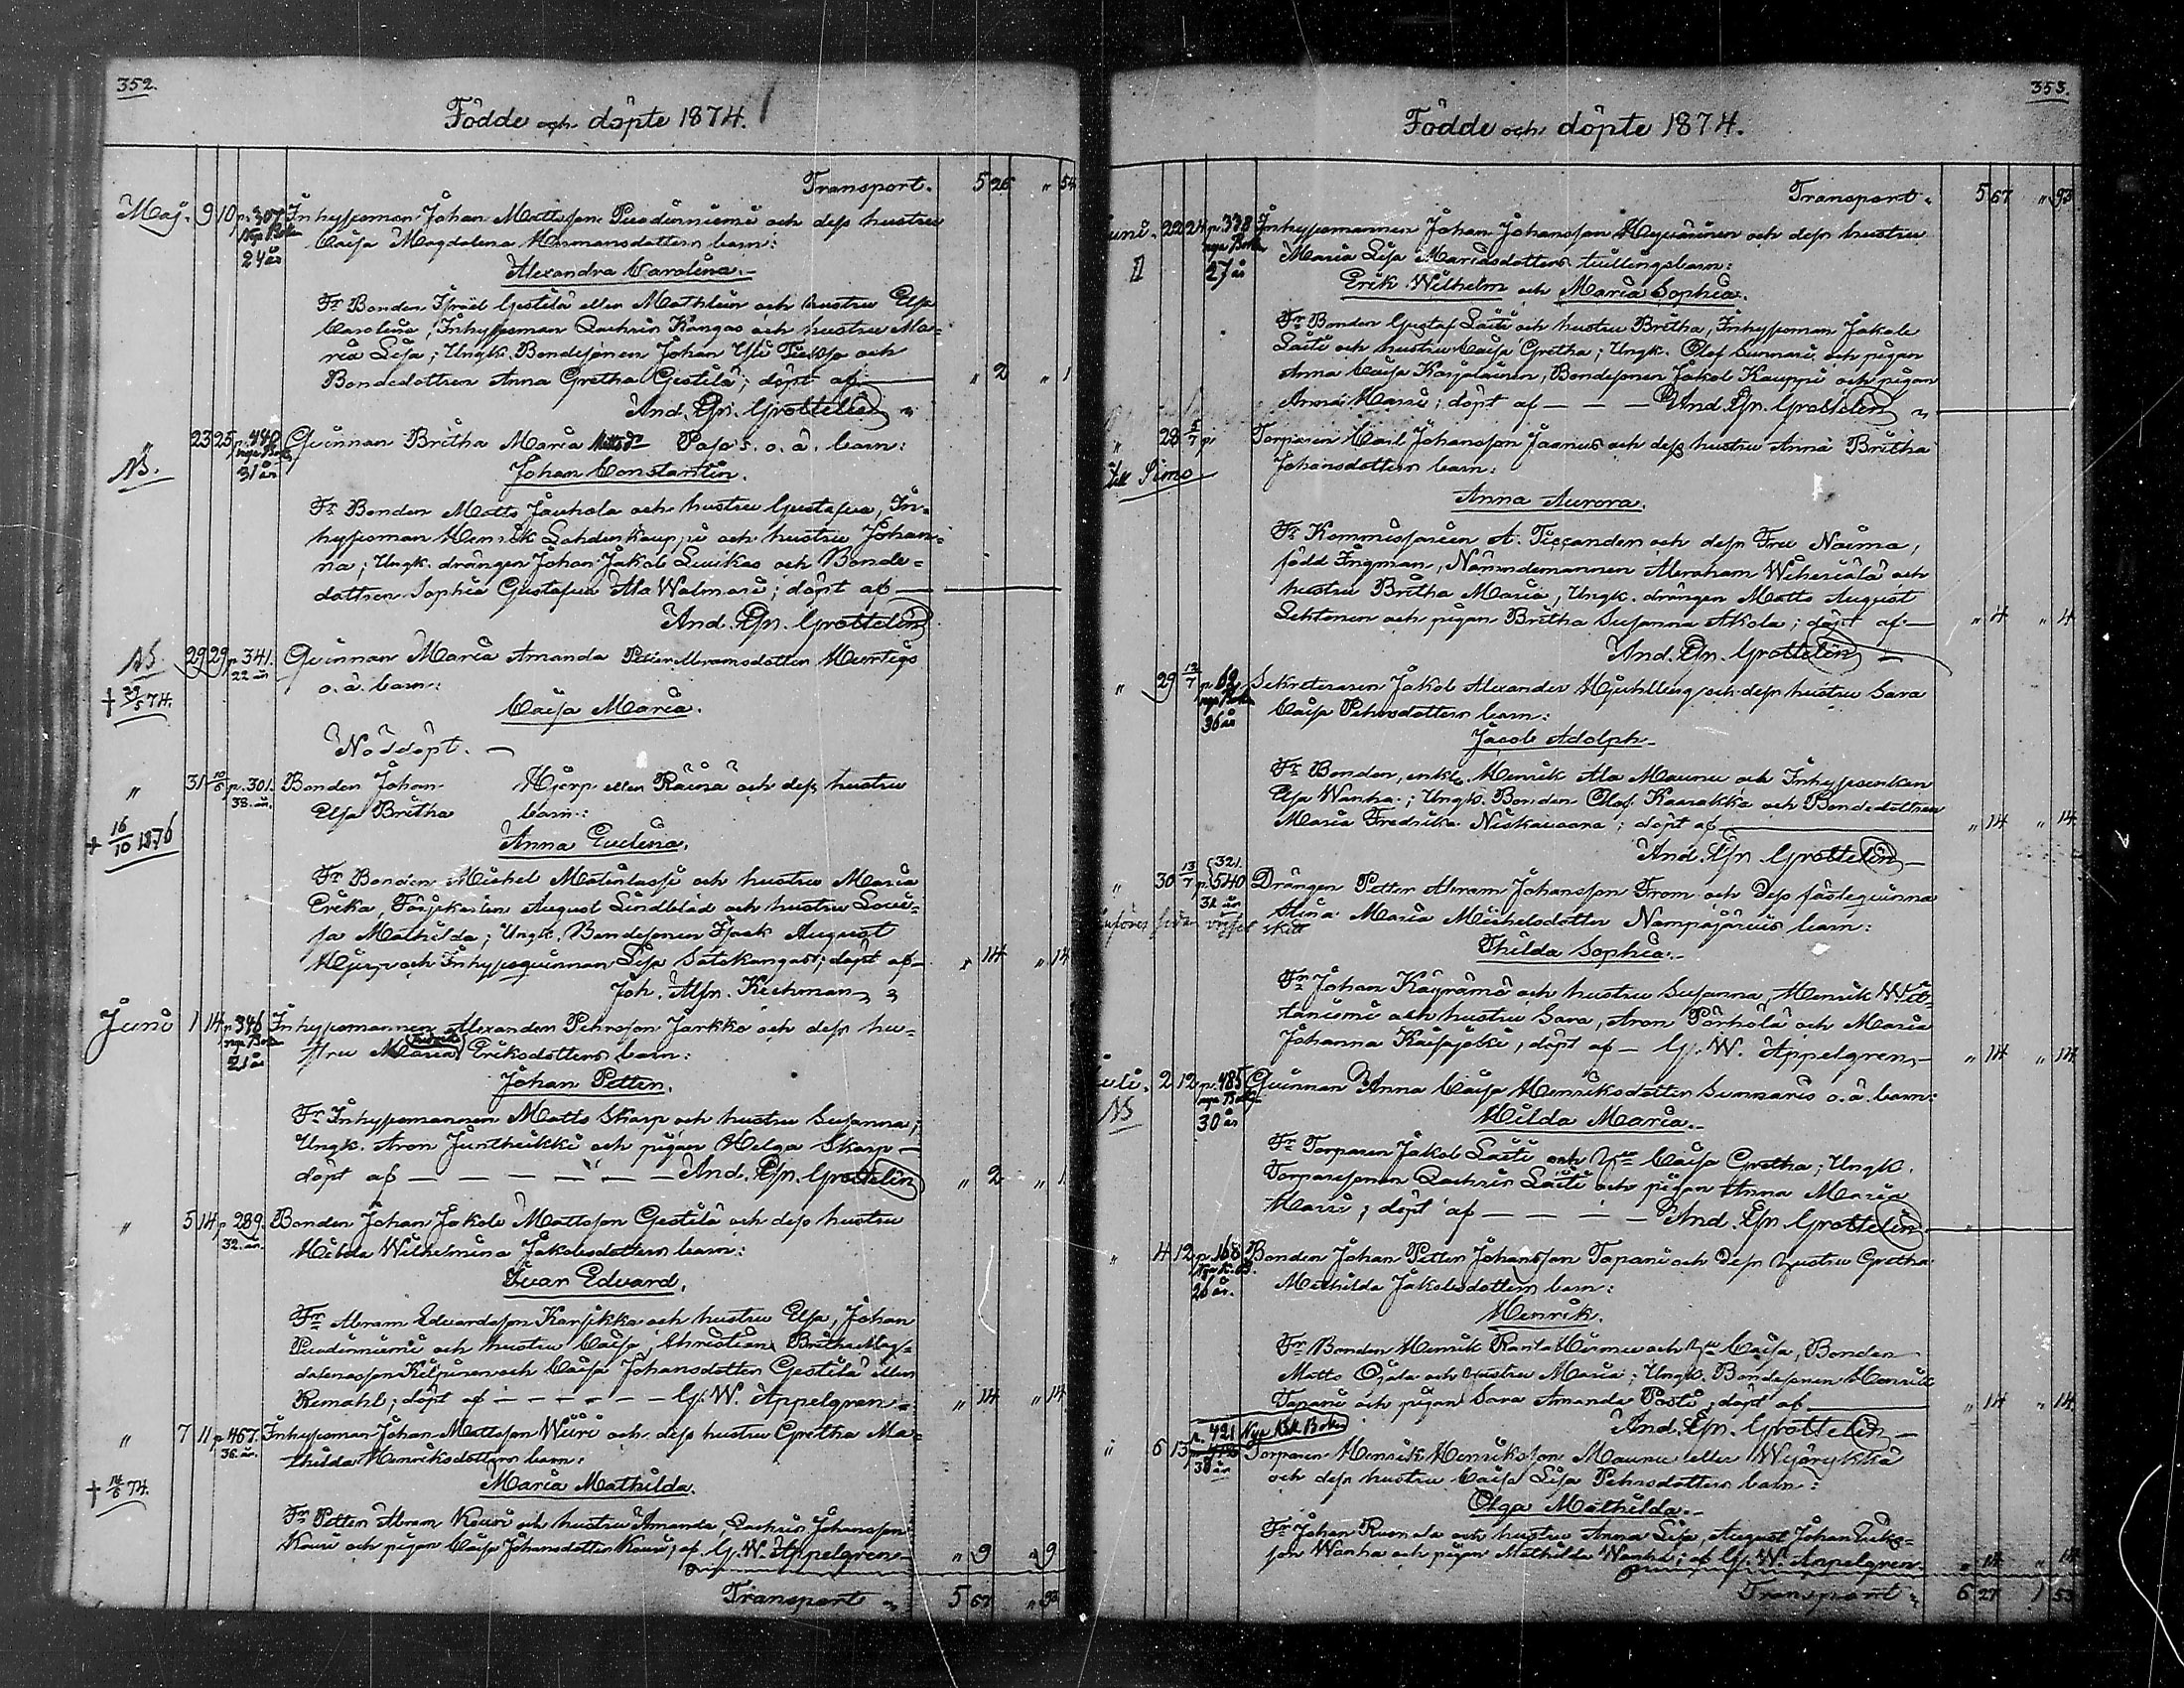 352.
Födde och döpte 1874.
Transport. 5 26 " 54
Maj. 9 10 p. 307 Inhysesman Johan Mattsson och dess hustru
Nya Boken Caisa Magdalena Hermansdotters barn:
24 år
Alexandra Carolina.
Fr Bonden Isräel Gestilä eller och hustru Elsa
Carolina, Inhysesman Zachris Kangas och hustru Ma-
ria Lisa; Ungk. Bondesonen Johan och
Bondedottren Anna Gretha Gestilä; döpt af " 2 " 1
And. Gr. Grottelin
" 23 25 p. 440 Qvinnan Britha Maria Mattsdr o. ä. barn:
NB. nya Boken
31 år Johan Constantin.
Fr Bonden Matts Jauhola och hustru Gustafva, In-
hysesman Henrik och hustru Johan-
na; Ungk. drängen Johan Jakob och Bonde-
dottren Sophia Gustafva Ala Walmari; döpt af
And. Gr. Grottelin
NB. 29 29 p. 341. Qvinnan Maria Amanda Abramsdotter Hurtigs
22 år o. ä. barn:
† 29/5 74.
Caisa Maria.
Nöddöpt.
" 31 10/6 p. 301. Bonden Johan Hjerp eller Räisä och dess hustru
38 år. Elsa Britha barn:
† 16/10 1876 Anna Evelina.
Fr Bonden Michel Matinlassi och hustru Maria
Erika, Färjkarlen August Lindblad och hustru Lovi-
sa Mathilda; Ungk. Bondesonen Isaak August
Hjerp och Inhysesqvinnan Lisa Satokangas; döpt af " 14 " 14
Joh. Alfr. Keckman
Juni 1 14 p. 346 Inhysesmannen Alexander Pehrsson Jarkko och dess hu-
nya Boken stru Maria Eriksdotters barn:
21 år
Johan Petter.
Fr Inhysesmannen Matts Skarp och hustru Susanna;
Ungk. Aron Juntheikki och pigan Helga Skarp
döpt af — — — — — And. Gr. Grottelin " 2 " 1
" 5 14 p. 289. Bonden Johan Jakob Mattsson Gestilä och dess hustru
32. år. Hilda Wilhelmina Jakobsdotters barn:
Ivar Edvard.
Fr Abram Edvardsson Karsikka och hustru Elsa, Johan
och hustru Caisa, Christian Britha Mag-
dalenasson Kilpinen och Caisa Johansdotter Gestilä eller
Remahl; döpt af — — — — G. W. Appelgren " 14 " 14
" 7 11 p. 467. Inhysesman Johan Mattsson Wiiri och dess hustru Gretha Ma-
36. år. thilda Henriksdotters barn:
† 14/6 74. Maria Mathilda.
Fr Petter Abram Kouri och hustru Amanda, Zachris Johansson
Kouri och pigan Caisa Johansdotter Kouri; af G. W. Appelgren " 9 " 9
Transport 5 67 " 93
353.
Födde och döpte 1874.
Transport. 5 67 " 93
Juni. 22 24 p. 338 Inhysesmannen Johan Johansson och dess hustru
nya Boken Maria Lisa Mariasdotters tvillingsbarn:
27 år Erik Wilhelm och Maria Sophia.
Fr Bonden Gustaf Laiti och hustru Britha, Inhysesman Jakob
Laiti och hustru Caisa Gretha; Ungk. Olof Sunnari och pigan
Anna Caisa Karjalainen, Bondesonen Jakob Kauppi och pigan
Anna; döpt af — — — And. Gr. Grottelin
" 28 5/7 p. Torparen Carl Johansson Jaanus och dess hustru Anna Britha
till Simo Johansdotters barn:
Anna Aurora.
Fr Kommissarien A. Ticcander och dess Fru Naima,
född Ingman, Nämndemannen Abraham och
hustru Britha Maria, Ungk. drängen Matts August
Lehtonen och pigan Britha Susanna Akola; döpt af " 4 " 4
And. Gr. Grottelin
" 29 12/7 p. 62 Sekreteraren Jakob Alexander och dess hustru Sara
nya Boken Caisa Pehrsdotters barn:
36 år
Jacob Adolph.
Fr Bonden, enkl. Henrik Ala Maunu och Inhysesenkan
Elsa Wanha; Ungk. Bonden Olof och Bondedottren
Maria Fredrika Niskavaara; döpt af " 14 " 14
And. Gr. Grottelin
" 30 13/7 p. 321. 540 Drängen Petter Abram Johansson From och dess fästeqvinna
31 år Stina Maria Michelsdotter Nampajärvis barn:
Thilda Sophia.
Fr Johan Käyrämö och hustru Susanna, Henrik Wit-
taniemi och hustru Sara, Aron Pörhölä och Maria
Johanna Kaisajoki, döpt af — G. W. Appelgren " 14 " 14
Juli. 2 12 p. 485 Qvinnan Anna Caisa Henriksdotter Sunnaris o. ä. barn:
NB nya Boken
30 år Hilda Maria.
Fr Torparen Jakob Laiti och Hu Caisa Gretha; Ungk.
Torparesonen Zachris Laiti och pigan Anna Maria
; döpt af — — — And. Gr. Grottelin
" 4 12 p. 168 Bonden Johan Petter Johansson Tapani och dess hustru Gretha
26 år. Mathilda Jakobsdotters barn:
Henrik.
Fr Bonden Henrik Ranta och Hu Caisa, Bonden
Matts Ojala och hustru Maria; Ungk. Bondesonen Henrik
Tapani och pigan Sara Amanda Posti; döpt af " 14 " 14
p. 421 Nya Boken And. Gr. Grottelin
" 6 13 38 år Torparen Henrik Henriksson Maunu eller
och dess hustru Caisa Lisa Pehrsdotters barn:
Olga Mathilda.
Fr Johan Ruonala och hustru Anna Lisa, August Johan Eriks-
son Wanha och pigan Mathilda Wanha; af G. W. Appelgren " 14 " 14
Transport 6 27 1 53